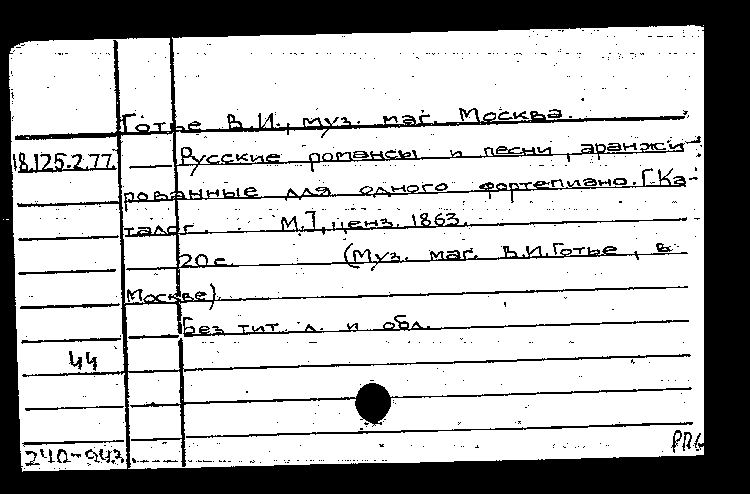 Готье В.И., муз. маг. Москва.
18.125.2.77 Русские романсы и песни, аранжи-
рованные для одного фортепиано. [Ка-
талог. М.], ценз. 1863.
20 с. (Муз. маг. В.И. Готье, в
Москве)
Без тит. л. и обл.
44
240-943